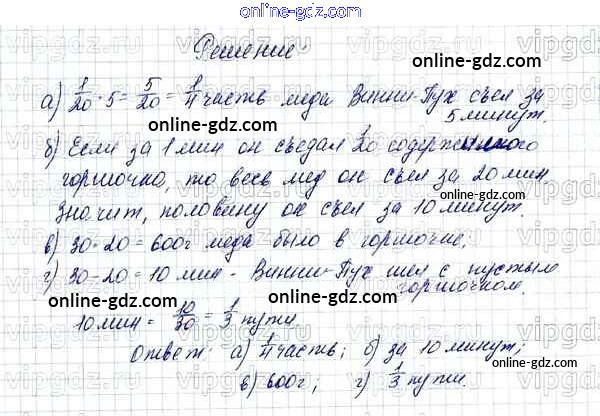 online-gdz.com
Решение
а) 1/20 · 5 = 5/20 = 1/4 часть меда Винни-Пух съел за
5 минут.
online-gdz.com
б) Если за 1 мин он съедал 1/20 содержимого
горшочка, то весь мед он съел за 20 мин
online-gdz.com
Значит, половину он съел за 10 минут.
online-gdz.com
в) 30 · 20 = 600г меда было в горшочке;
г) 30 - 20 = 10 мин - Винни-Пух шел с пустым
горшочком.
online-gdz.com
online-gdz.com
10 мин = 10/30 = 1/3 пути.
Ответ: а) 1/4 часть; б) за 10 минут;
online-gdz.com
в) 600г; г) 1/3 пути.